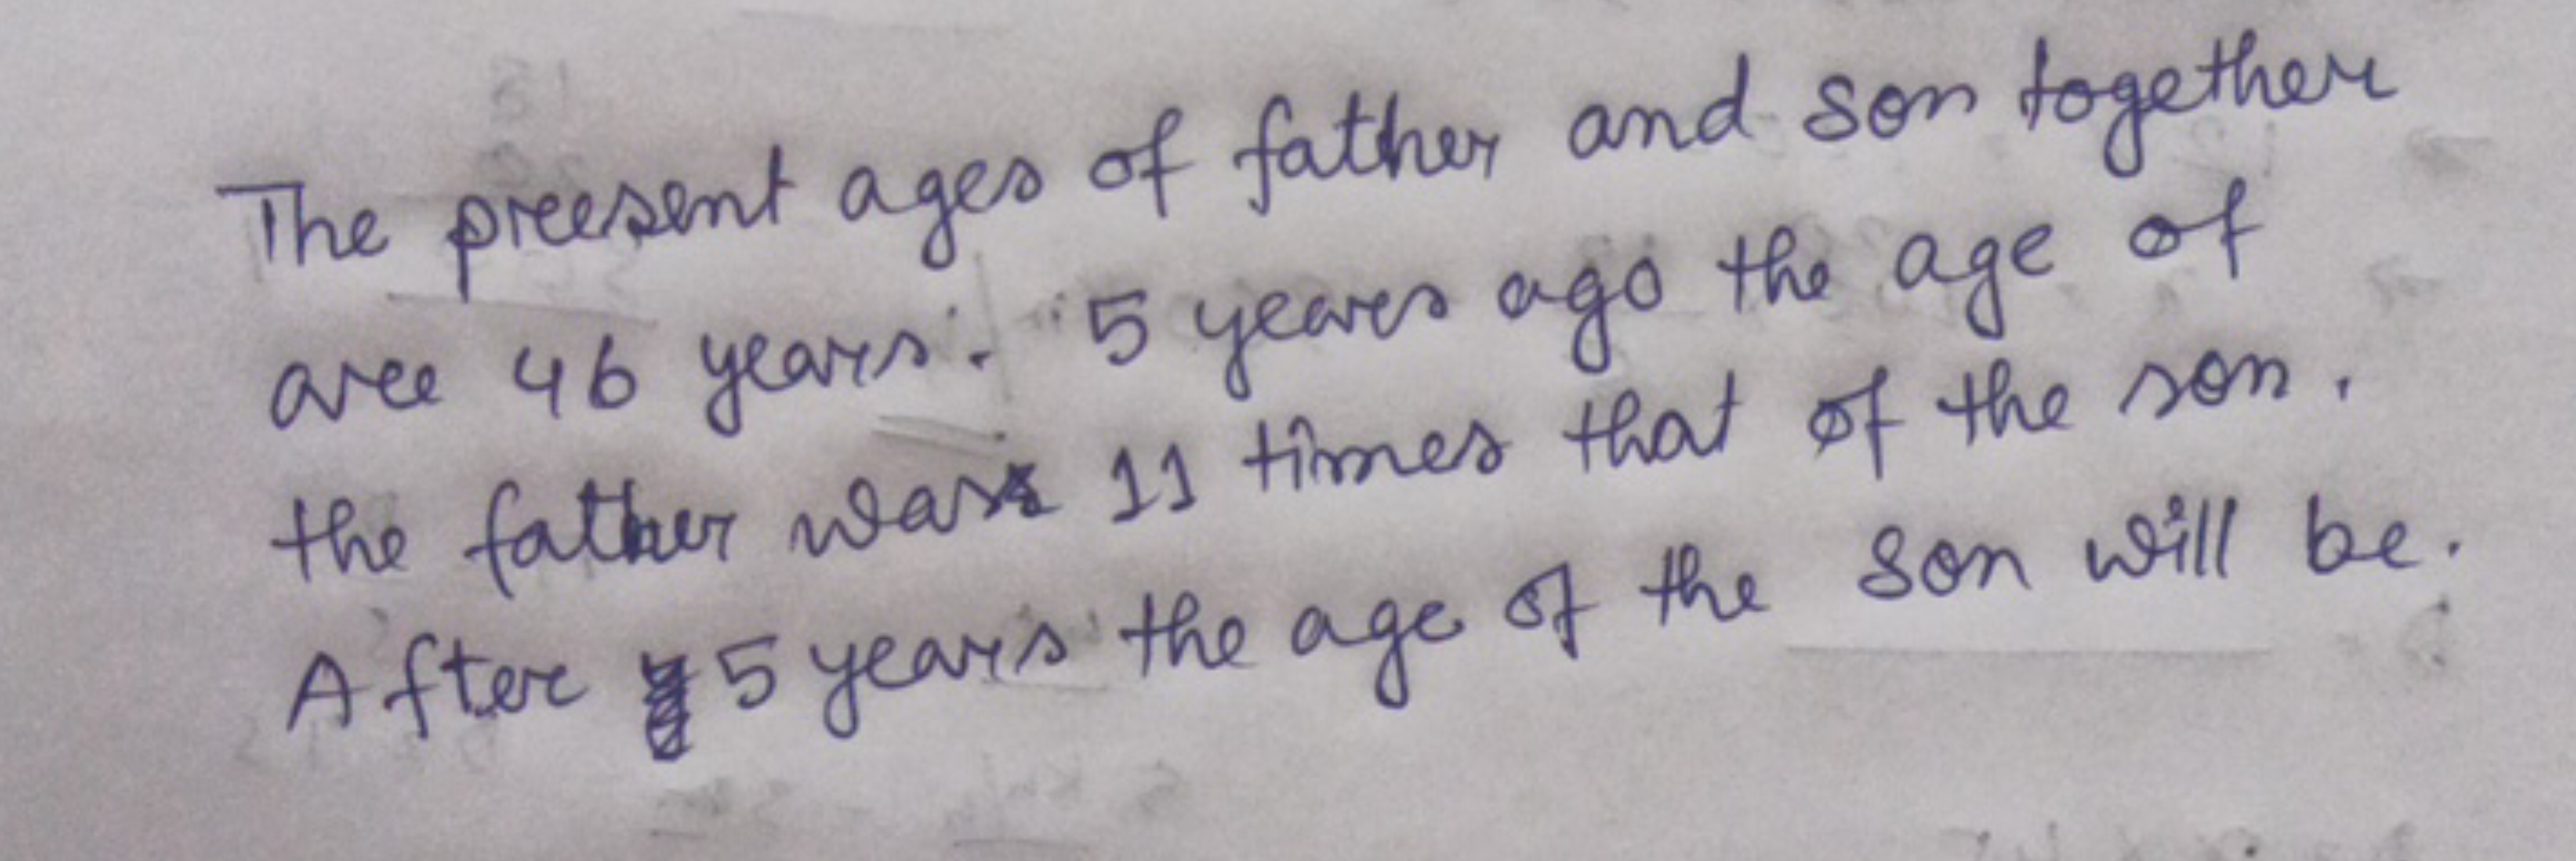 The present ages of father and son together
are 46 years. 5 years ago the age of
the father was 11 times that of the son.
After 5 years the age of the son will be.